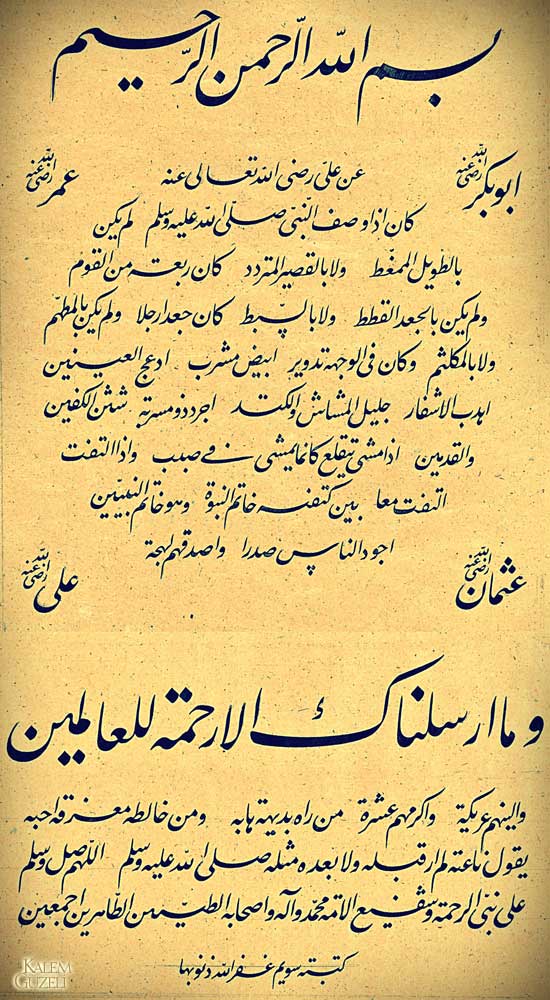 بسم الله الرحمن الرحيم
ابوبكر رضى الله عنه
عن على رضى الله تعالى عنه
عمر رضى الله عنه
كان اذا وصف النبى صلى الله عليه وسلم لم يكن
بالطويل الممغط ولا بالقصير المتردد كان ربعة من القوم
ولم يكن بالجعد القطط ولا بالسبط كان جعدا رجلا ولم يكن بالمطهم
ولا بالمكلثم وكان فى الوجهه تدوير ابيض مشرب ادعج العينين
اهدب الاشفار جليل المشاش والكتد اجرد ذو مسربة شثن الكفين
والقدمين اذا مشى يتقلع كانما يمشى فى صبب واذا التفت
التفت معا بين كتفيه خاتم النبوة وهو خاتم النبيين
اجود الناس صدرا واصدقهم لهجة
عثمان رضى الله عنه
على رضى الله عنه
وما ارسلناك الا رحمة للعالمين
والينهم عريكة واكرمهم عشرة من راه بديهة هابه ومن خالطه معرفة احبه
يقول ناعته لم ار قبله ولا بعده مثله صلى الله عليه وسلم اللهم صل وسلم
على نبى الرحمة وشفيع الامة محمد وآله واصحابه الطيبين الطاهرين اجمعين
كتبته سويم غفر الله ذنوبها
KALEM
GUZELI